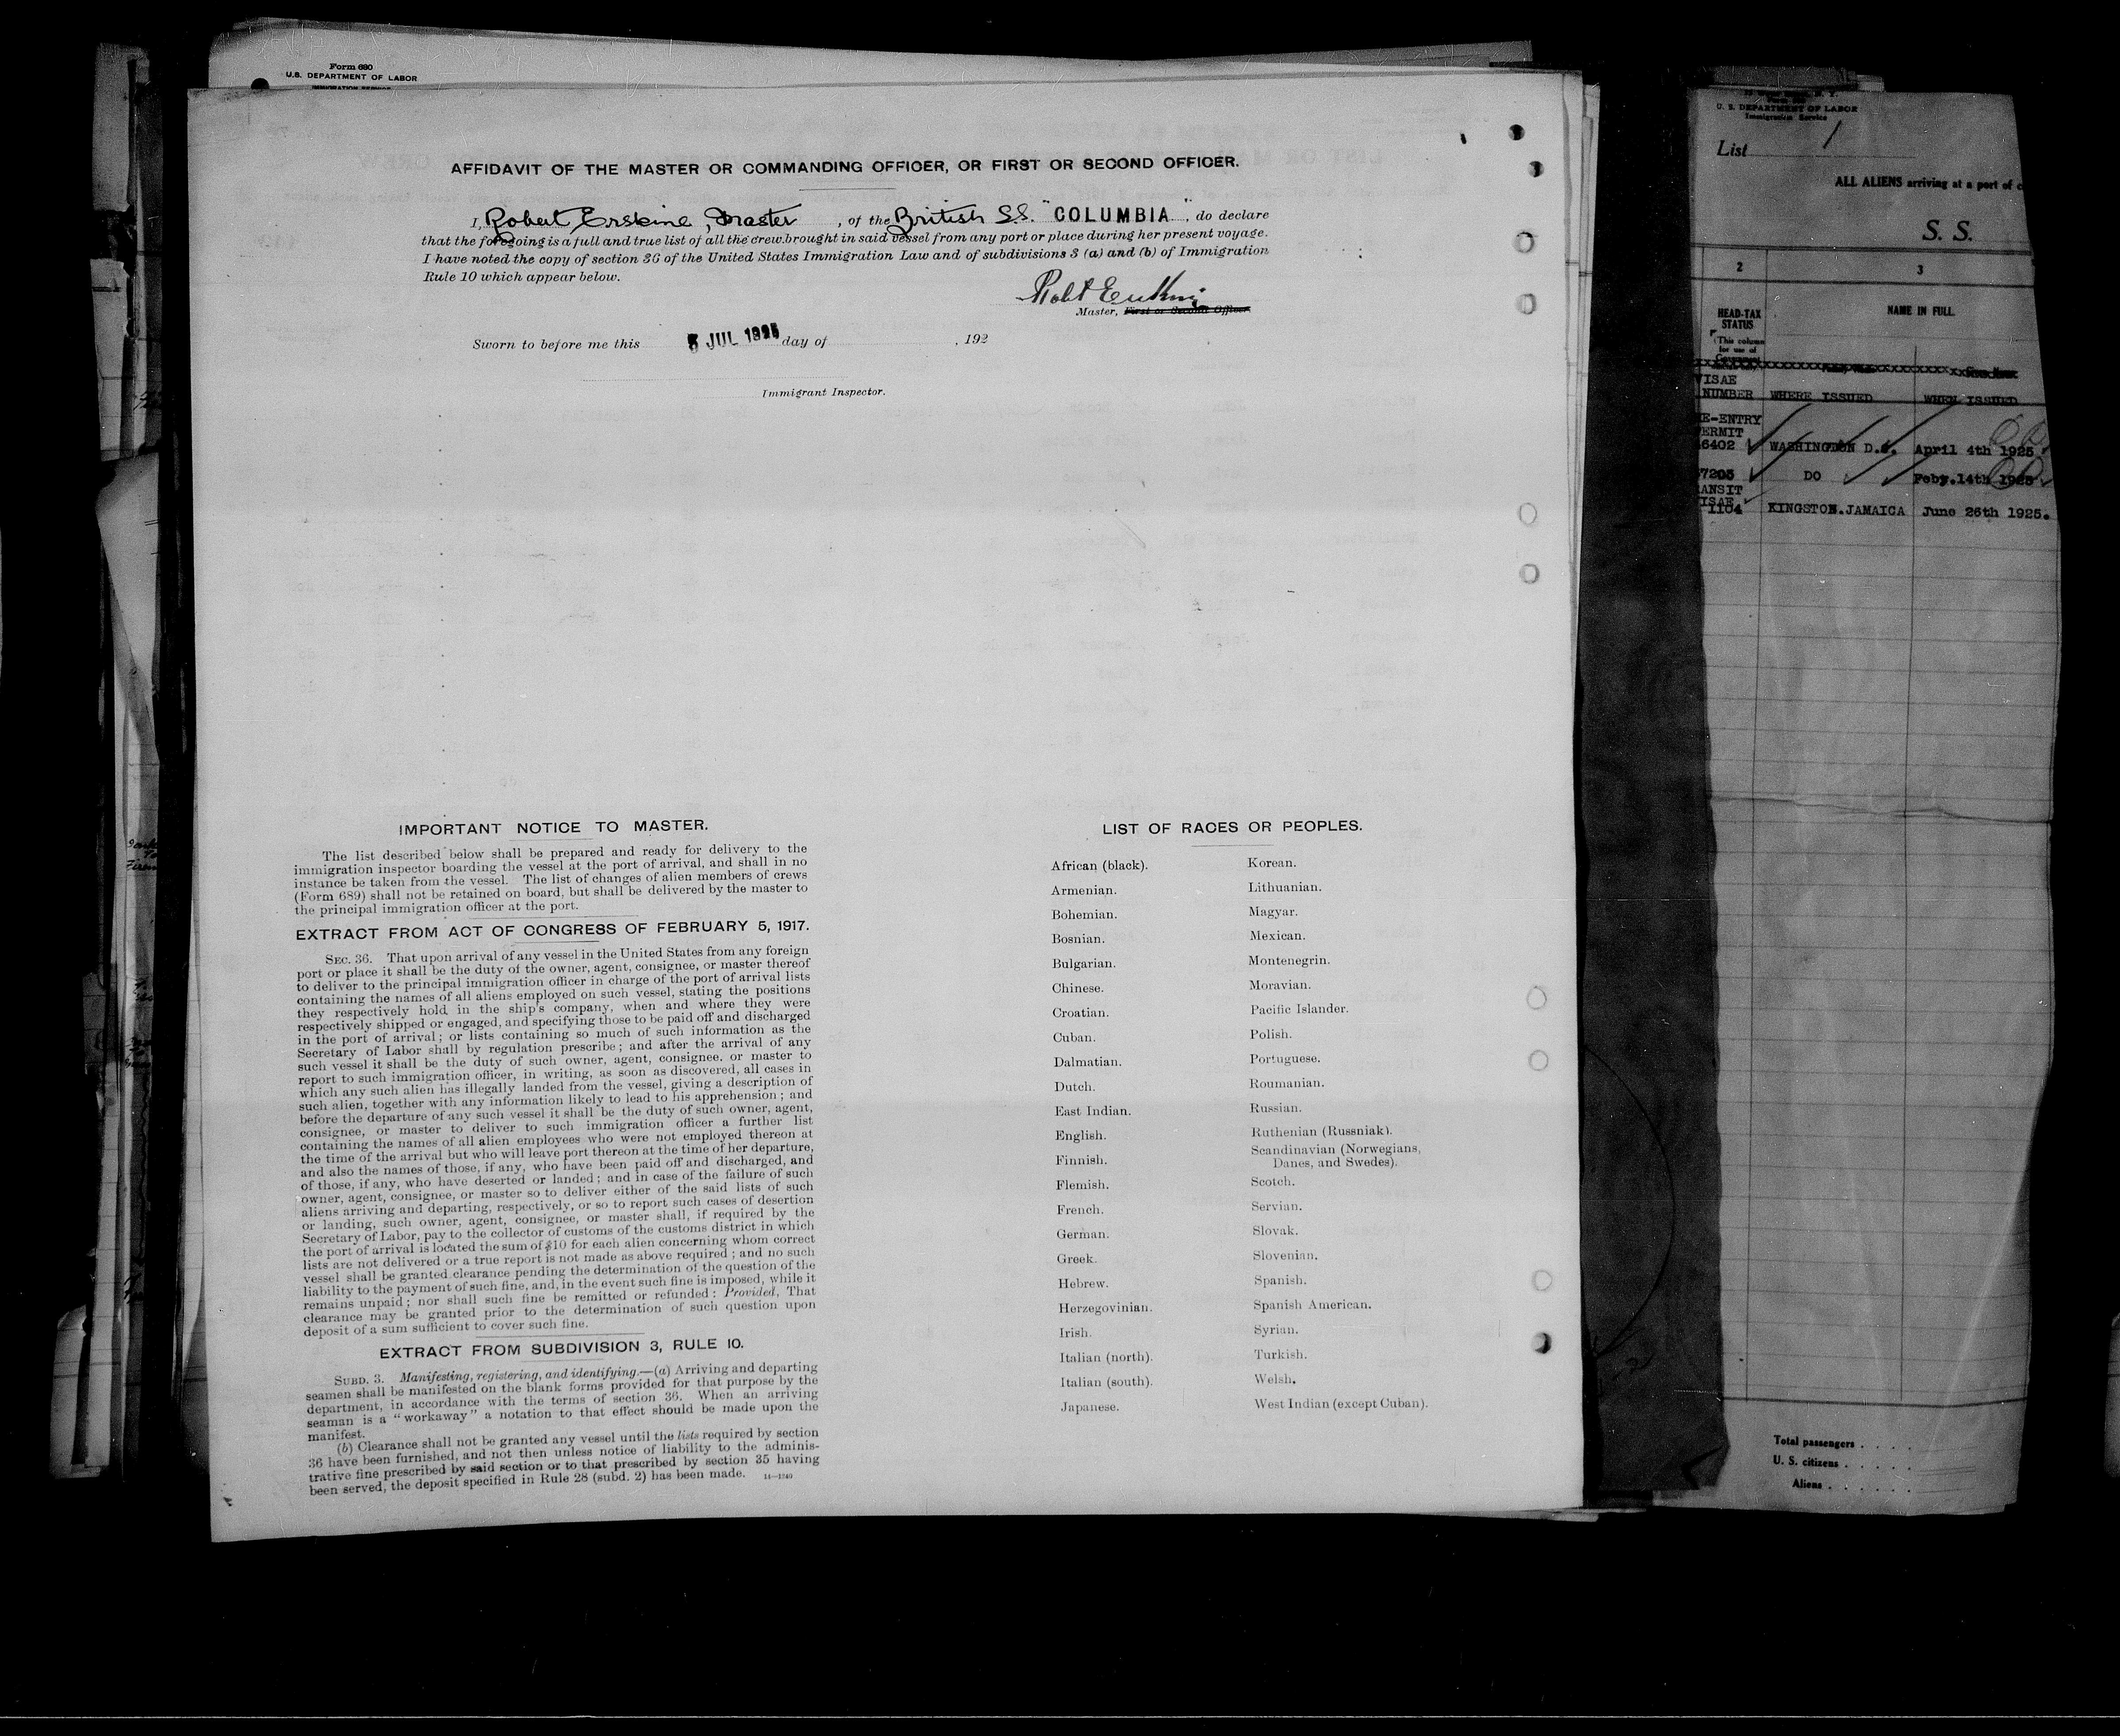 Form 680
U.S. DEPARTMENT OF LABOR
IMMIGRATION SERVICE
AFFIDAVIT OF THE MASTER OR COMMANDING OFFICER, OR FIRST OR SECOND OFFICER.
I, Robert Erskine, Master, of the British S.S. "COLUMBIA", do declare
that the foregoing is a full and true list of all the crew brought in said vessel from any port or place during her present voyage.
I have noted the copy of section 36 of the United States Immigration Law and of subdivisions 3 (a) and (b) of Immigration
Rule 10 which appear below.
Robt Erskine
Master, First or Second Officer
Sworn to before me this 5 JUL 1925 day of , 192
Immigrant Inspector.
IMPORTANT NOTICE TO MASTER.
The list described below shall be prepared and ready for delivery to the
immigration inspector boarding the vessel at the port of arrival, and shall in no
instance be taken from the vessel. The list of changes of alien members of crews
(Form 689) shall not be retained on board, but shall be delivered by the master to
the principal immigration officer at the port.
EXTRACT FROM ACT OF CONGRESS OF FEBRUARY 5, 1917.
SEC. 36. That upon arrival of any vessel in the United States from any foreign
port or place it shall be the duty of the owner, agent, consignee, or master thereof
to deliver to the principal immigration officer in charge of the port of arrival lists
containing the names of all aliens employed on such vessel, stating the positions
they respectively hold in the ship's company, when and where they were
respectively shipped or engaged, and specifying those to be paid off and discharged
in the port of arrival; or lists containing so much of such information as the
Secretary of Labor shall by regulation prescribe; and after the arrival of any
such vessel it shall be the duty of such owner, agent, consignee. or master to
report to such immigration officer, in writing, as soon as discovered, all cases in
which any such alien has illegally landed from the vessel, giving a description of
such alien, together with any information likely to lead to his apprehension; and
before the departure of any such vessel it shall be the duty of such owner, agent,
consignee, or master to deliver to such immigration officer a further list
containing the names of all alien employees who were not employed thereon at
the time of the arrival but who will leave port thereon at the time of her departure,
and also the names of those, if any, who have been paid off and discharged, and
of those, if any, who have deserted or landed; and in case of the failure of such
owner, agent, consignee, or master so to deliver either of the said lists of such
aliens arriving and departing, respectively, or so to report such cases of desertion
or landing, such owner, agent, consignee, or master shall, if required by the
Secretary of Labor, pay to the collector of customs of the customs district in which
the port of arrival is located the sum of $10 for each alien concerning whom correct
lists are not delivered or a true report is not made as above required; and no such
vessel shall be granted clearance pending the determination of the question of the
liability to the payment of such fine, and, in the event such fine is imposed, while it
remains unpaid; nor shall such fine be remitted or refunded: Provided, That
clearance may be granted prior to the determination of such question upon
deposit of a sum sufficient to cover such fine.
EXTRACT FROM SUBDIVISION 3, RULE 10.
SUBD. 3. Manifesting, registering, and identifying.—(a) Arriving and departing
seamen shall be manifested on the blank forms provided for that purpose by the
department, in accordance with the terms of section 36. When an arriving
seaman is a "workaway" a notation to that effect should be made upon the
manifest.
(b) Clearance shall not be granted any vessel until the lists required by section
36 have been furnished, and not then unless notice of liability to the adminis-
trative fine prescribed by said section or to that prescribed by section 35 having
been served, the deposit specified in Rule 28 (subd. 2) has been made. 14—1240
LIST OF RACES OR PEOPLES.
African (black).
Armenian.
Bohemian.
Bosnian.
Bulgarian.
Chinese.
Croatian.
Cuban.
Dalmatian.
Dutch.
East Indian.
English.
Finnish.
Flemish.
French.
German.
Greek.
Hebrew.
Herzegovinian.
Irish.
Italian (north).
Italian (south).
Japanese.
Korean.
Lithuanian.
Magyar.
Mexican.
Montenegrin.
Moravian.
Pacific Islander.
Polish.
Portuguese.
Roumanian.
Russian.
Ruthenian (Russniak).
Scandinavian (Norwegians,
Danes, and Swedes).
Scotch.
Servian.
Slovak.
Slovenian.
Spanish.
Spanish American.
Syrian.
Turkish.
Welsh.
West Indian (except Cuban).
U. S. DEPARTMENT OF LABOR
Immigration Service
List 1
ALL ALIENS arriving at a port of
S. S.
2 3
HEAD-TAX
STATUS
(This column
for use of
NAME IN FULL
VISAE
NUMBER WHERE ISSUED WHEN ISSUED
E-ENTRY
ERMIT
6402 WASHINGTON D.C. April 4th 1925
7205 DO Feby.14th 1925
ANSIT
ISAE
1104 KINGSTON.JAMAICA June 26th 1925.
Total passengers . . . .
U. S. citizens . . . . .
Aliens . . . . . .